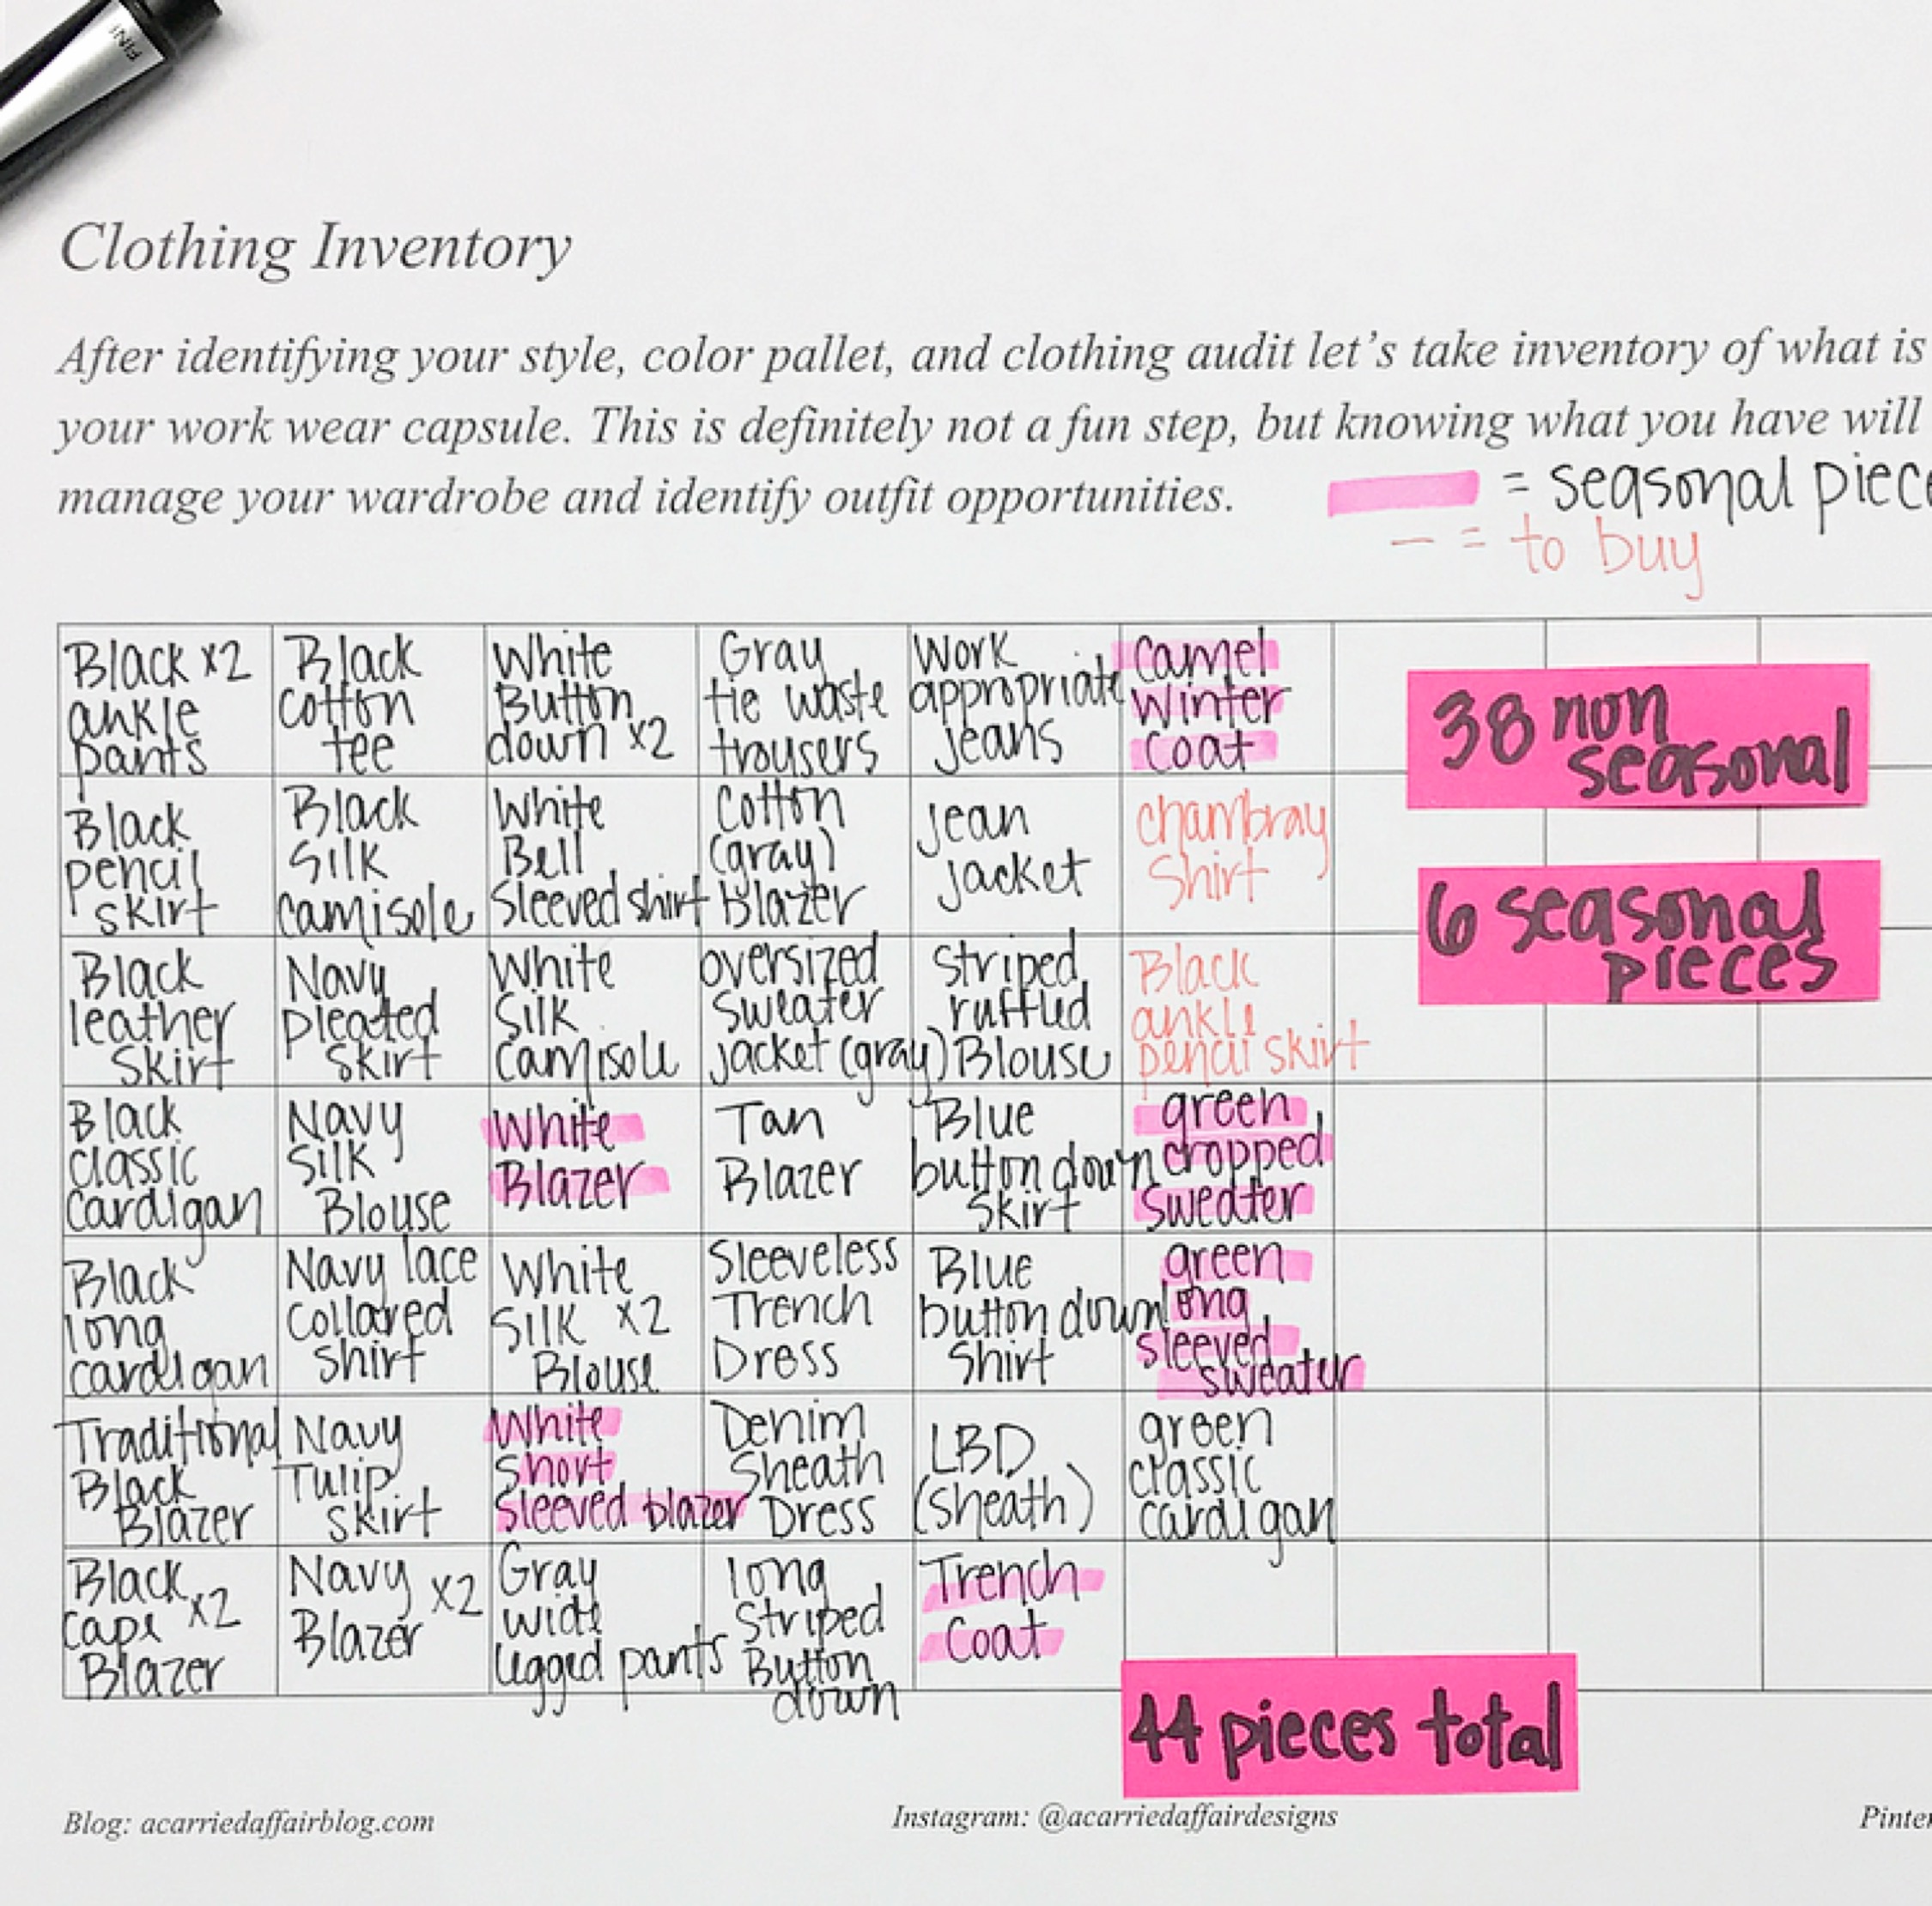 FINI
Clothing Inventory
After identifying your style, color pallet, and clothing audit let's take inventory of what is
your work wear capsule. This is definitely not a fun step, but knowing what you have will
manage your wardrobe and identify outfit opportunities.
= seasonal piece
— = to buy
Black x2
ankle
pants
Black
cotton
tee
White
Button
down x2
Gray
tie waste
trousers
Work
appropriate
jeans
Camel
Winter
Coat
38 non
seasonal
Black
pencil
skirt
Black
Silk
camisole
White
Bell
Sleeved shirt
Cotton
(gray)
Blazer
Jean
Jacket
chambray
Shirt
6 seasonal
pieces
Black
leather
Skirt
Navy
pleated
Skirt
White
Silk
Camisole
oversized
Sweater
jacket (gray)
Striped
ruffled
Blouse
Black
ankle
pencil skirt
Black
classic
cardigan
Navy
Silk
Blouse
White
Blazer
Tan
Blazer
Blue
button down
Skirt
green
cropped
Sweater
Black
long
cardigan
Navy lace
collared
Shirt
White
Silk x2
Blouse
Sleeveless
Trench
Dress
Blue
button down
Shirt
green
long
sleeved
sweater
Traditional
Black
Blazer
Navy
Tulip
Skirt
White
Short
Sleeved blazer
Denim
Sheath
Dress
LBD
(sheath)
green
classic
cardigan
Black
cape x2
Blazer
Navy x2
Blazer
Gray
wide
legged pants
long
Striped
Button
down
Trench
Coat
44 pieces total
Blog: acarriedaffairblog.com
Instagram: @acarriedaffairdesigns
Pinter